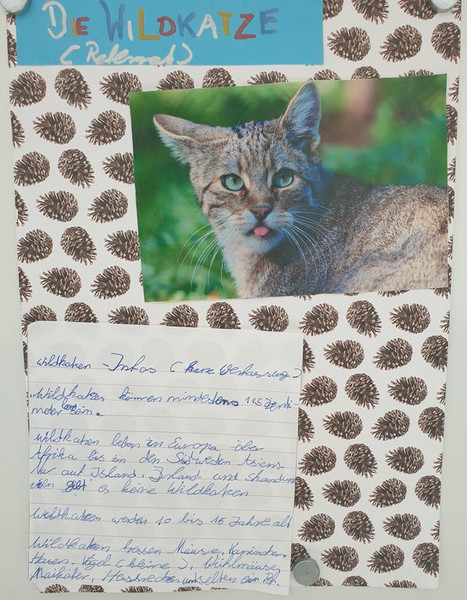 DIE WILDKATZE
(Rekernah)
Wildkatzen - Infos (kurze
Wildkatzen können mindestens 115 Zenti-
meter sein.
Wildkatzen leben in Europa über
Afrika bis in den Südwesten Asiens
nur auf Island, Irland und
gibt es keine Wildkatzen
Wildkatzen werden 10 bis 16 Jahre alt
Wildkatzen fressen Mäuse, Kaninchen,
Hasen, Vögel (kleine), Wühlmäuse,
Maikäfer, und selten ein Reh.